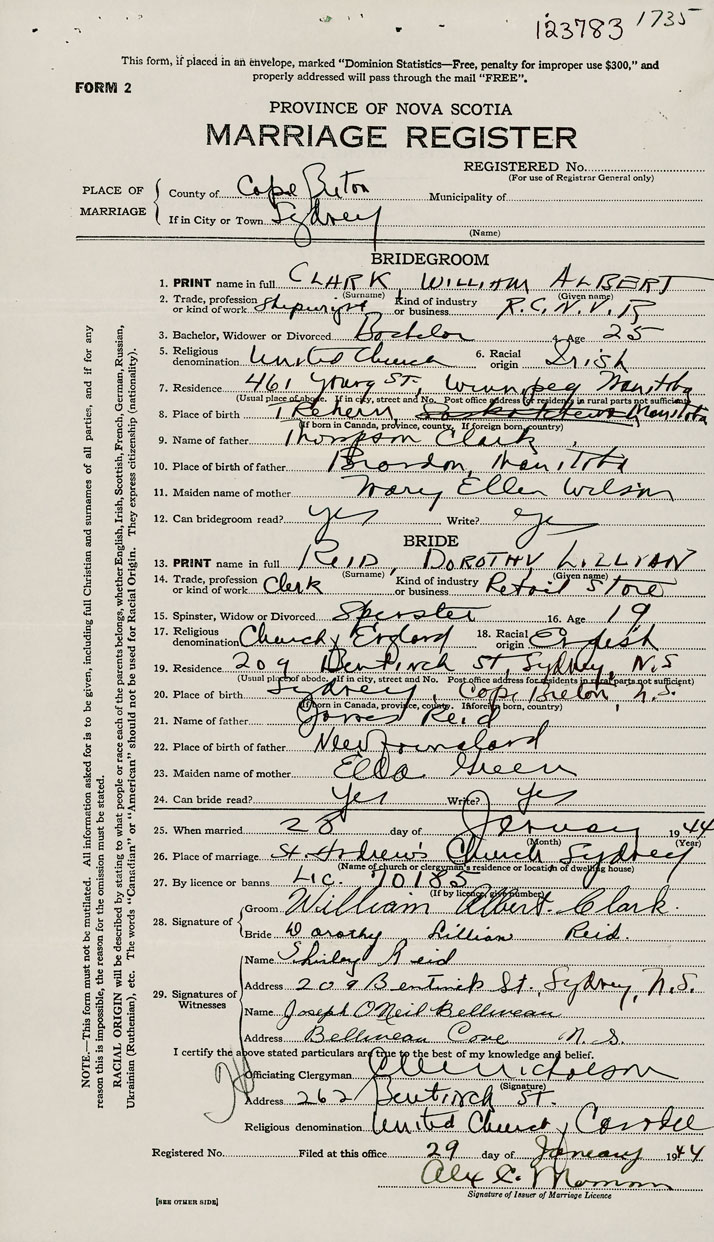 123783 1735
This form, if placed in an envelope, marked "Dominion Statistics—Free, penalty for improper use $300," and
properly addressed will pass through the mail "FREE".
FORM 2
PROVINCE OF NOVA SCOTIA
MARRIAGE REGISTER
REGISTERED No.
(For use of Registrar General only)
PLACE OF MARRIAGE
County of Cape Breton Municipality of
If in City or Town Sydney
(Name)
BRIDEGROOM
1. PRINT name in full CLARK WILLIAM ALBERT
(Surname) (Given name)
2. Trade, profession or kind of work Shipwright Kind of industry or business R.C.N.V.R
3. Bachelor, Widower or Divorced Bachelor 4. Age 25
5. Religious denomination United Church 6. Racial origin Irish
7. Residence 461 Young St, Winnipeg Manitoba
(Usual place of abode. If in city, street and No. Post office address for residents in rural parts not sufficient)
8. Place of birth Trehern, Saskatchewan Manitoba
(If born in Canada, province, county. If foreign born, country)
9. Name of father Thompson Clark
10. Place of birth of father Brandon, Manitoba
11. Maiden name of mother Mary Ellen Wilson
12. Can bridegroom read? yes Write? yes
BRIDE
13. PRINT name in full REID, DOROTHY LILLYAN
(Surname) (Given name)
14. Trade, profession or kind of work Clerk Kind of industry or business Retail Store
15. Spinster, Widow or Divorced Spinster 16. Age 19
17. Religious denomination Church of England 18. Racial origin English
19. Residence 209 Bentinck St, Sydney, N.S
(Usual place of abode. If in city, street and No. Post office address for residents in rural parts not sufficient)
20. Place of birth Sydney, Cape Breton, N.S.
(If born in Canada, province, county. If foreign born, country)
21. Name of father James Reid
22. Place of birth of father Newfoundland
23. Maiden name of mother Ella Green
24. Can bride read? yes Write? yes
25. When married 28 day of January 1944
(Month) (Year)
26. Place of marriage St. Andrew's Church Sydney
(Name of church or clergyman's residence or location of dwelling house)
27. By licence or banns Lic. 10183
(If by licence, give number)
28. Signature of
Groom William Albert Clark.
Bride Dorothy Lillian Reid.
29. Signatures of Witnesses
Name Shirley Reid
Address 209 Bentinck St., Sydney, N.S.
Name Joseph O'Neil Belliveau
Address Belliveau Cove N.S.
I certify the above stated particulars are true to the best of my knowledge and belief.
Officiating Clergyman Nicholson
(Signature)
Address 262 Bentinck St.
Religious denomination United Church of Canada
Registered No. Filed at this office 29 day of January 1944
Alex C.
Signature of Issuer of Marriage Licence
[SEE OTHER SIDE]
NOTE.—This form must not be mutilated. All information asked for is to be given, including full Christian and surnames of all parties, and if for any
reason this is impossible, the reason for the omission must be stated.
RACIAL ORIGIN will be described by stating to what people or race each of the parents belongs, whether English, Irish, Scottish, French, German, Russian,
Ukrainian (Ruthenian), etc. The words "Canadian" or "American" should not be used for Racial Origin. They express citizenship (nationality).